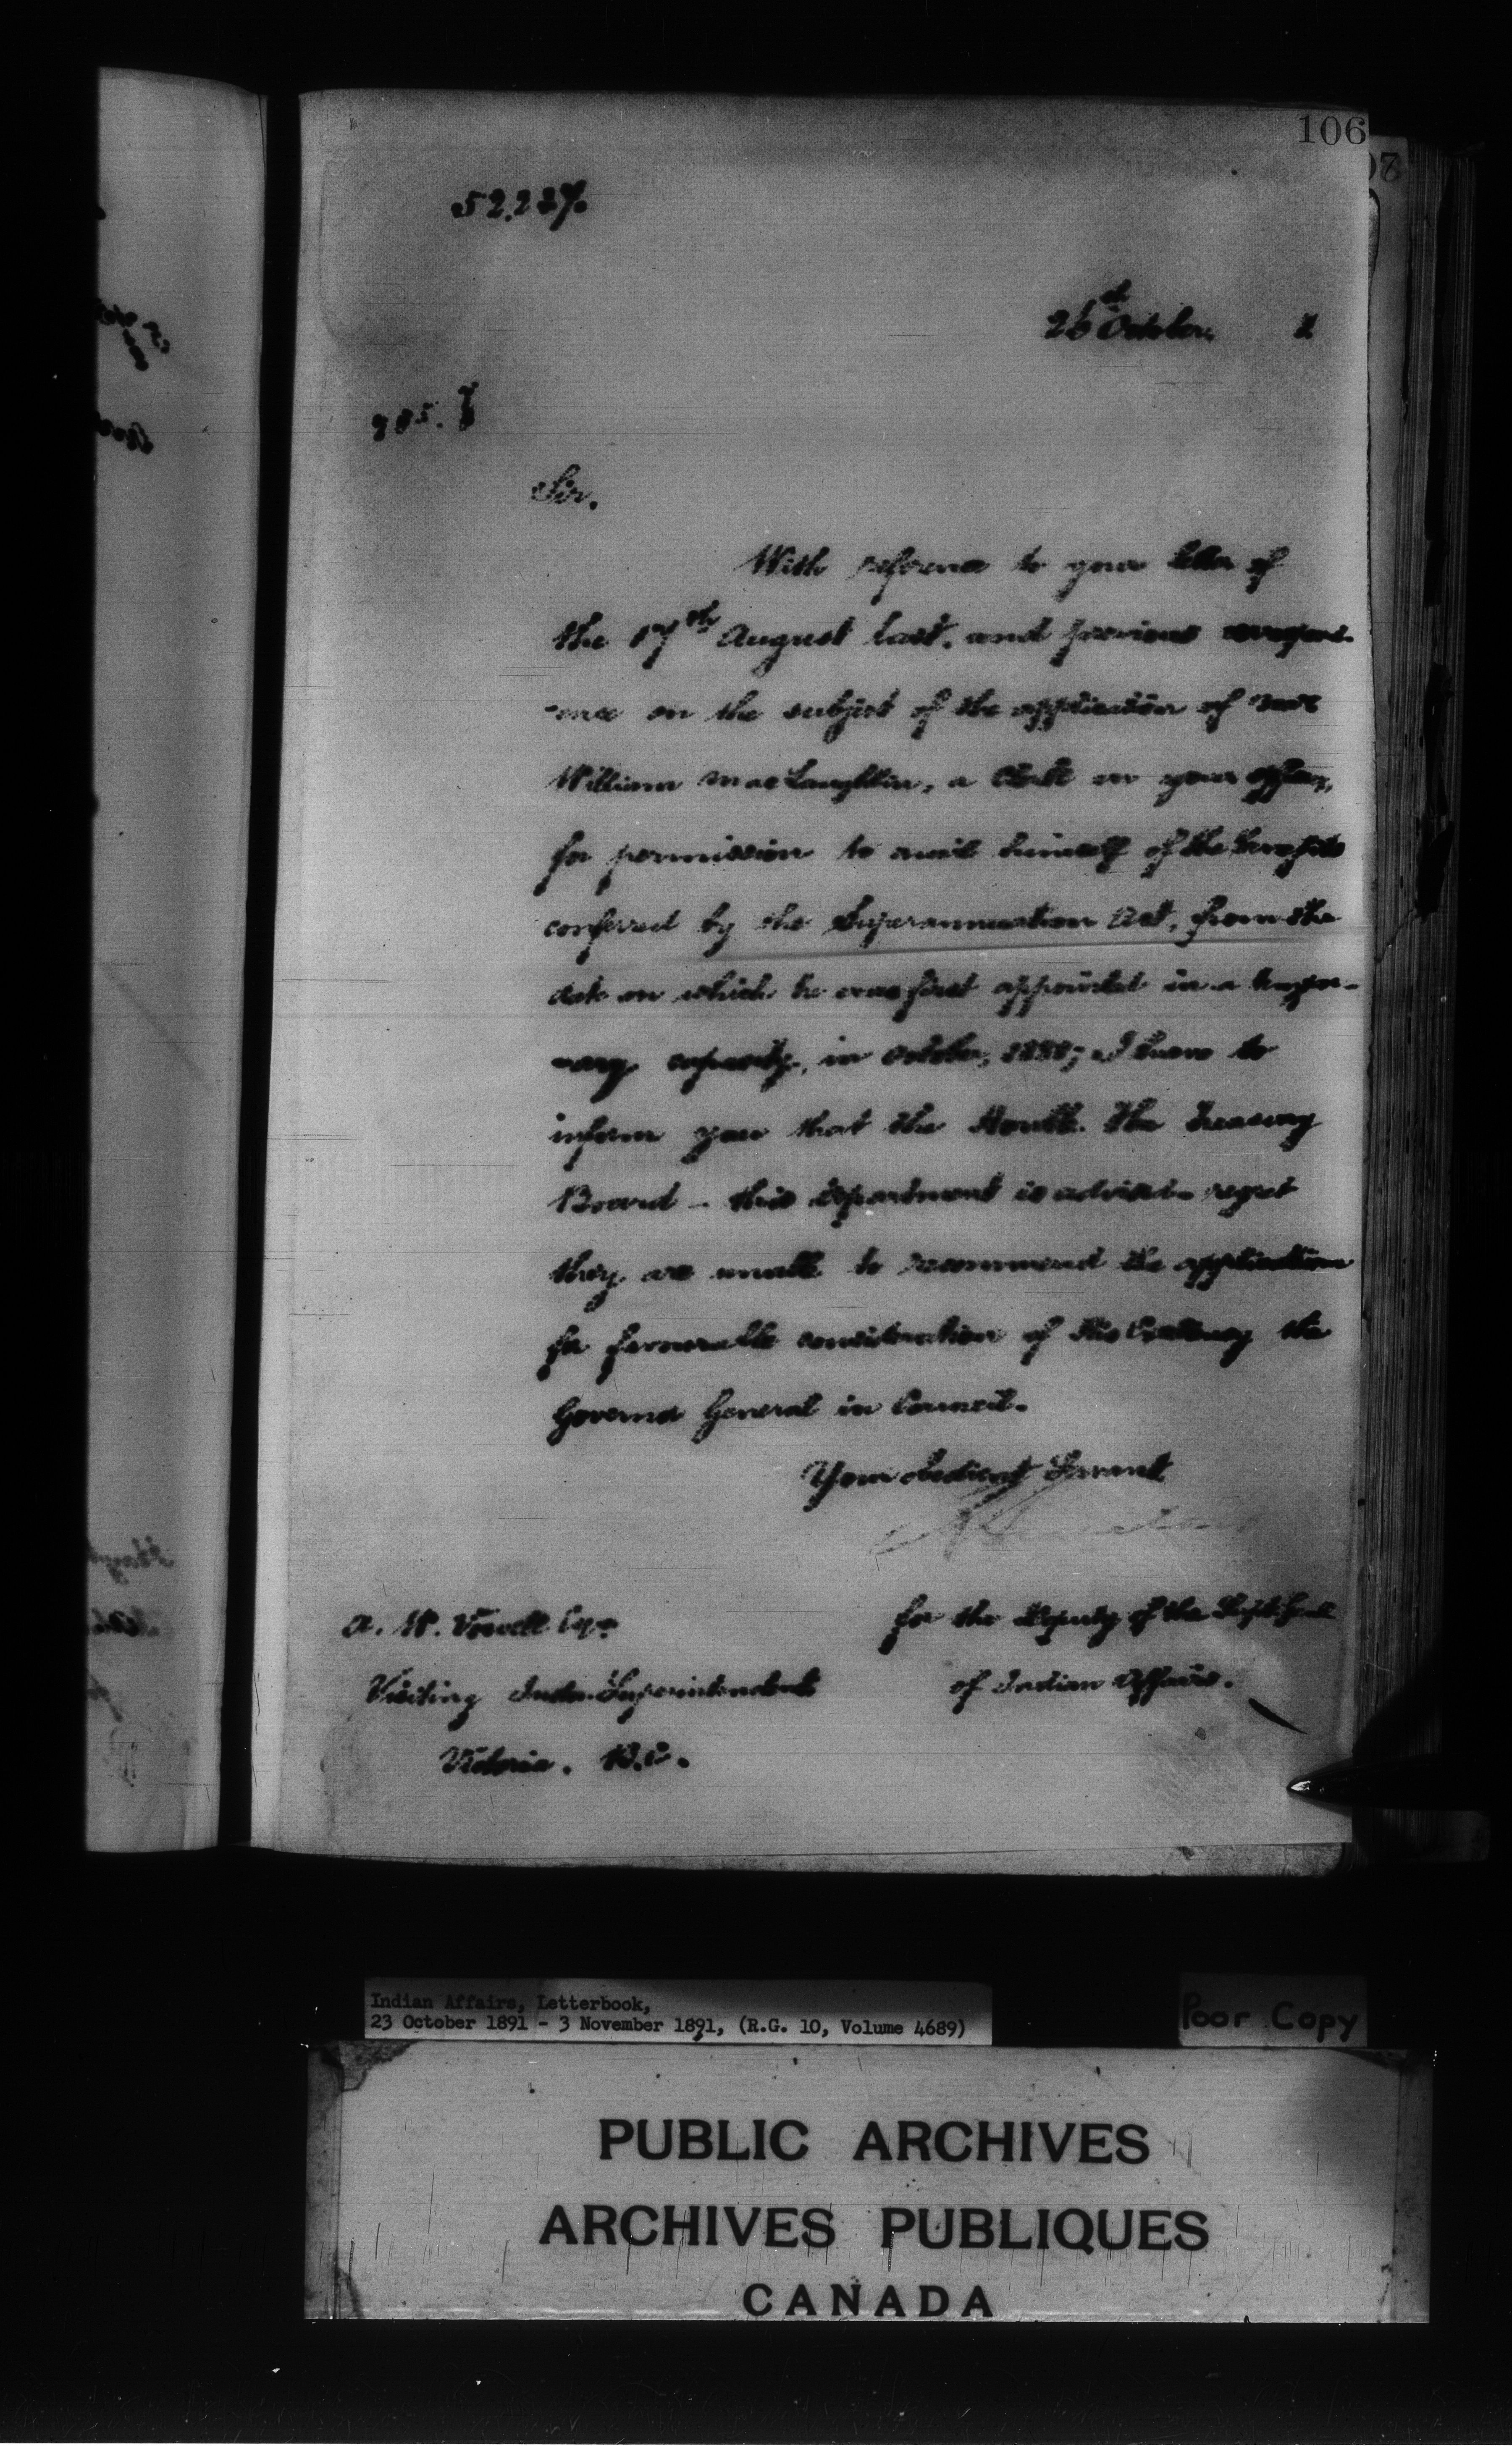 106
07
52.227.
26th October. 1
Sir.
With reference to your letter of
the 17th August last, and previous correspond-
-ence on the subject of the application of
William MacLaughlin, a Clerk in your office,
for permission to avail himself of the benefits
conferred by the Superannuation Act, from the
date on which he was first appointed in a tempor-
-ary capacity, in October, 1881; I have to
inform you that the Honble. the Treasury
Board - this department is advised - regret
they are unable to recommend the application
for favourable consideration of His Excellency the
Governor General in Council.
Your obedient Servant
A. W. Vowell Esqr.
for the Deputy of the Supt. Genl
Visiting Indn. Superintendent
of Indian Affairs.
Victoria. B.C.
Indian Affairs, Letterbook,
23 October 1891 - 3 November 1891, (R.G. 10, Volume 4689)
Poor Copy
PUBLIC ARCHIVES
ARCHIVES PUBLIQUES
CANADA